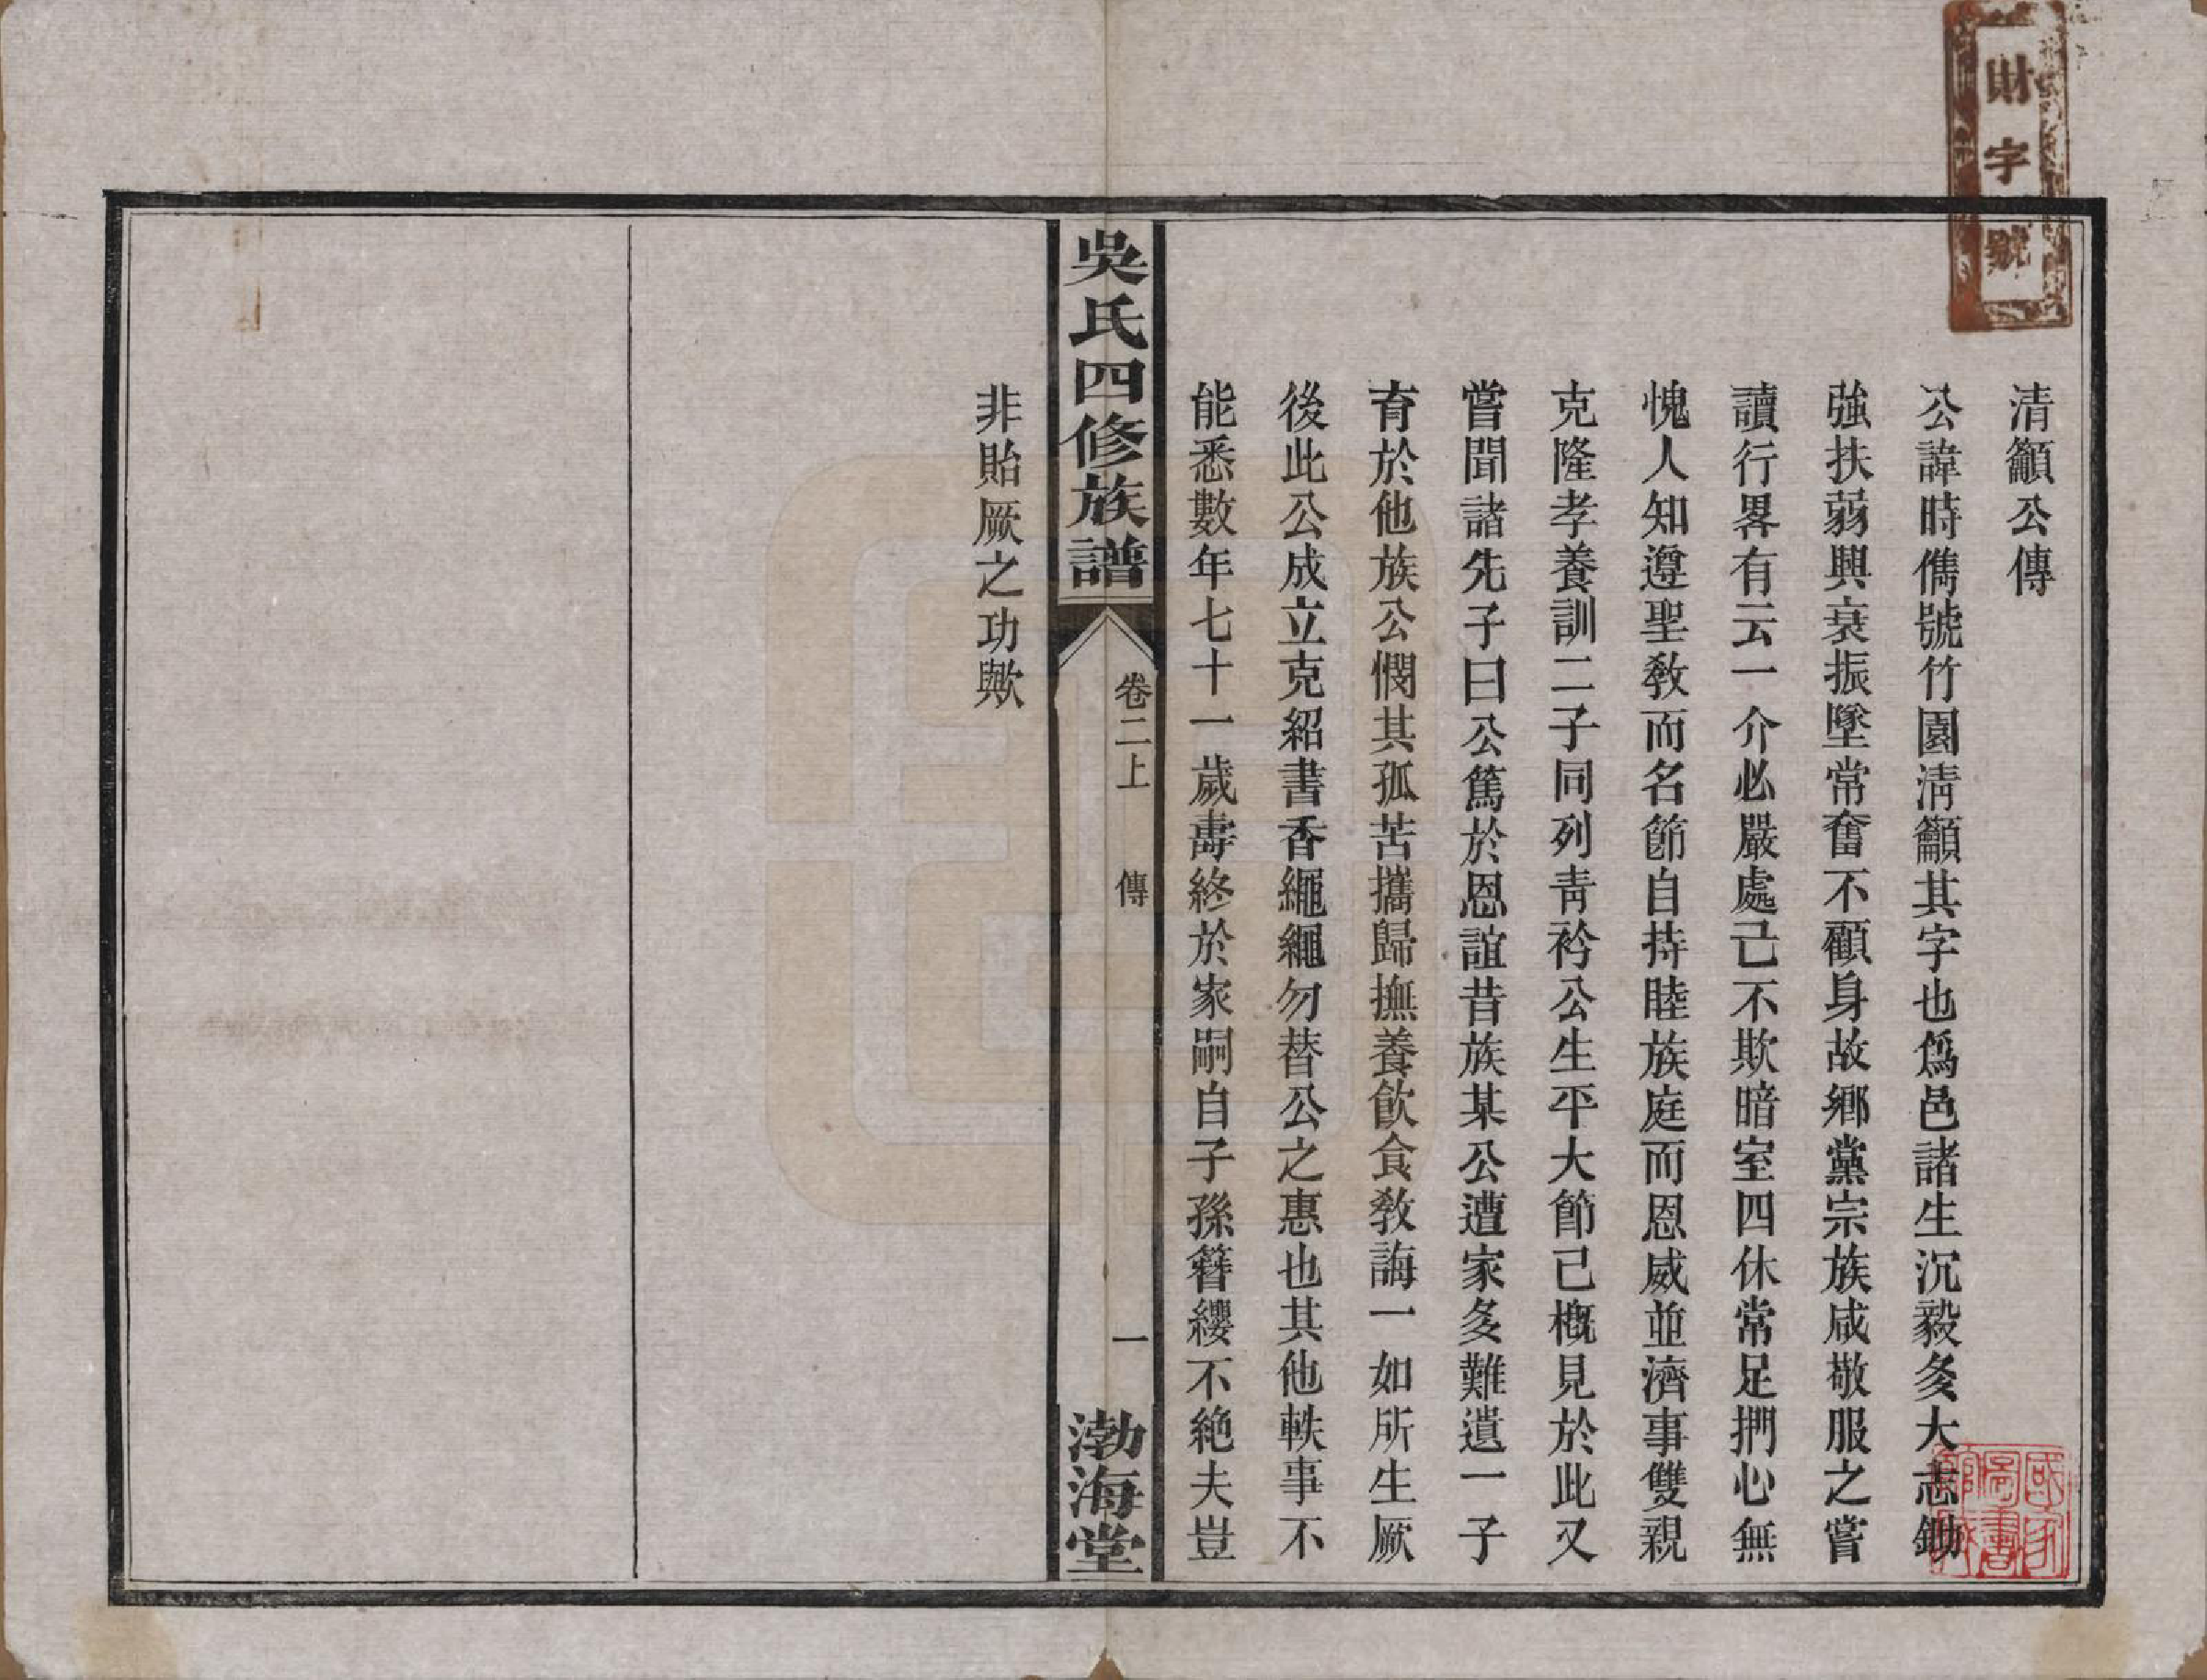 財字號
清籲公傳
公諱時儁號竹園淸籲其字也爲邑諸生沉毅多大志鋤
強扶弱興衰振墜常奮不顧身故鄕黨宗族咸敬服之嘗
讀行畧有云一介必嚴處己不欺暗室四休常足捫心無
愧人知遵聖敎而名節自持睦族庭而恩威並濟事雙親
克隆孝養訓二子同列靑衿公生平大節已槪見於此又
嘗聞諸先子曰公篤於恩誼昔族某公遭家多難遺一子
育於他族公憫其孤苦攜歸撫養飮食敎誨一如所生厥
後此公成立克紹書香繩繩勿替公之惠也其他軼事不
能悉數年七十一歲壽終於家嗣自子孫簪纓不絶夫豈
吳氏四修族譜
卷二上 傳
一
渤海堂
非貽厥之功歟